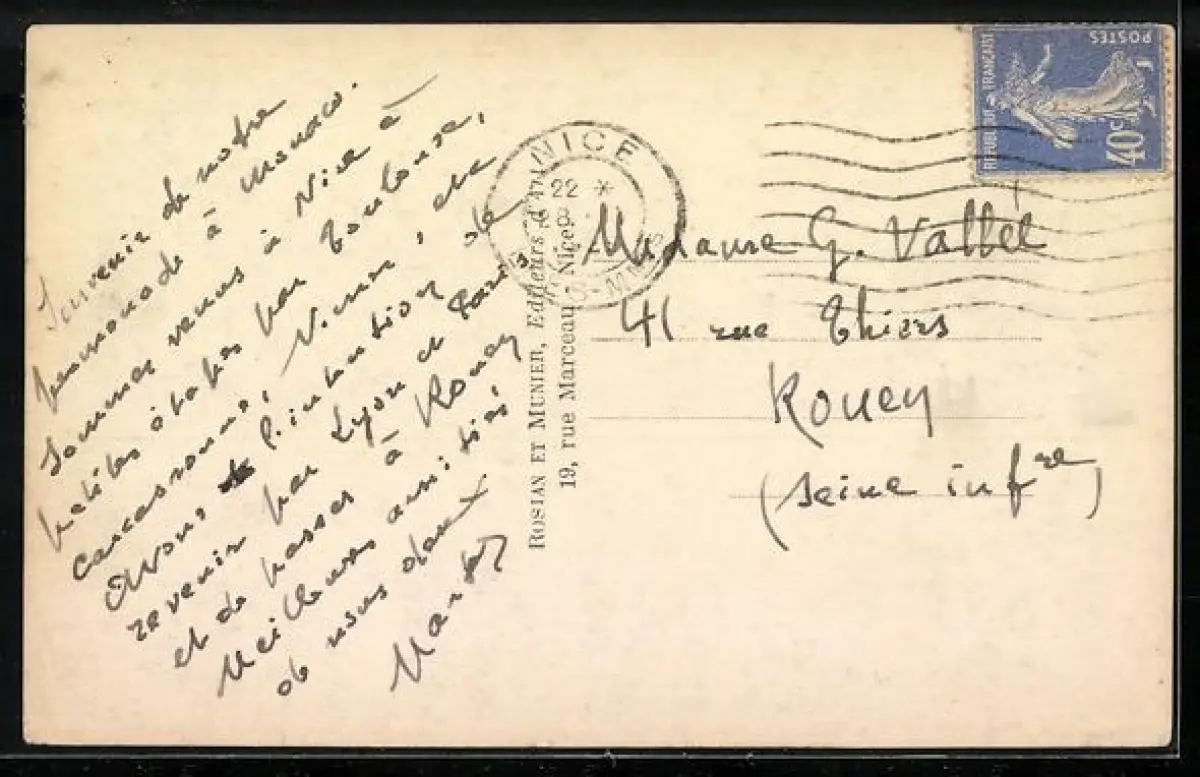 Souvenir de notre
promenade à Monaco.
Sommes venus à Nice à
petites étapes par Toulouse,
Carcassonne, Nîmes, etc
Avons l'intention de
revenir par Lyon et Paris
et de passer à Rouen
Meilleures amitiés
de nous deux
ROSIAN ET MUNIER, Editeurs d'Art
19, rue Marceau, Nice
NICE
22 *
RÉPUBLIQUE FRANÇAISE
POSTES
40c
Madame G. Vallée
41 rue Thiers
Rouen
(Seine infre)